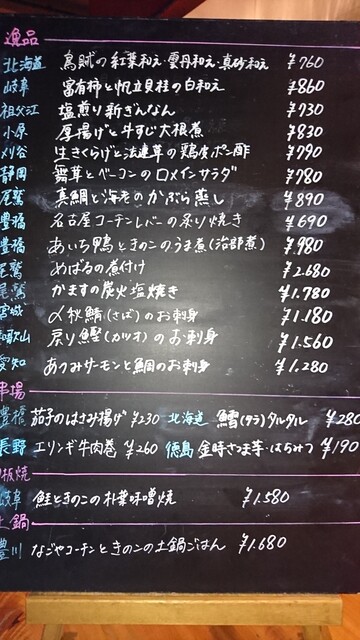 逸品
北海道 烏賊の紅葉和え・雲丹和え・真砂和え ¥760
岐阜 富有柿と帆立貝柱の白和え ¥860
祖父江 塩煎り新ぎんなん ¥730
小原 厚揚げと牛すじ大根煮 ¥830
刈谷 生きくらげと法蓮草の鶏皮ポン酢 ¥790
静岡 舞茸とベーコンのロメインサラダ ¥780
尾鷲 真鯛と海老のかぶら蒸し ¥890
豊橋 名古屋コーチンレバーの炙り焼き ¥690
豊橋 あいち鴨ときのこのうま煮(治部煮) ¥980
尾鷲 めばるの煮付け ¥2.680
尾鷲 かますの炭火塩焼き ¥1.780
宮城 〆秋鯖(さば)のお刺身 ¥1.180
戻り鰹(カツオ)のお刺身 ¥1.560
愛知 あつみサーモンと鯛のお刺身 ¥1.280
串揚
豊橋 茄子のはさみ揚げ ¥230 北海道 鱈(タラ)タルタル ¥280
長野 エリンギ牛肉巻 ¥260 徳島 金時さつま芋・はちみつ ¥190
板焼
岐阜 鮭ときのこの朴葉味噌焼 ¥1.580
土鍋
豊川 なごやコーチンときのこの土鍋ごはん ¥1.680